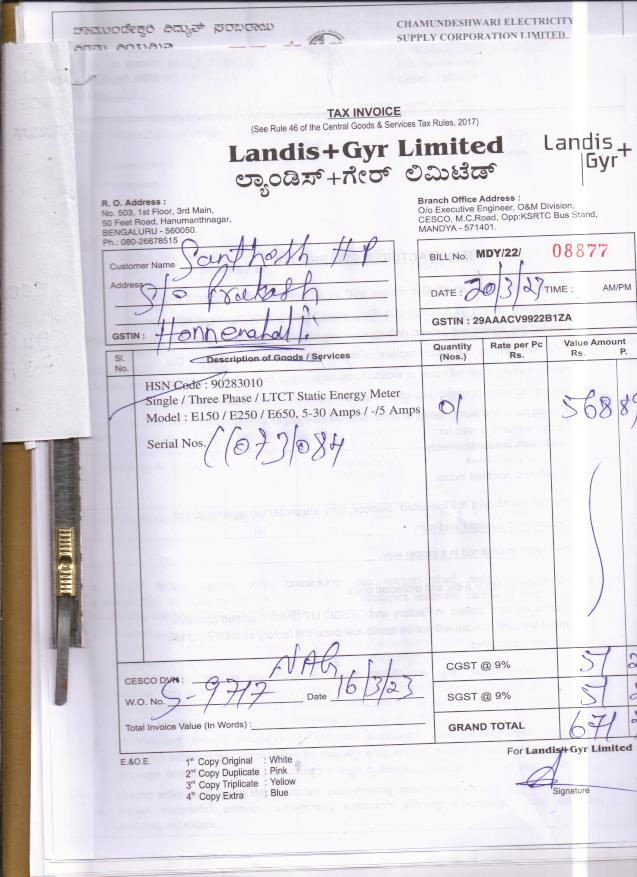 ಚಾಮುಂಡೇಶ್ವರಿ ವಿದ್ಯುತ್ ಸರಬರಾಜು
CHAMUNDESHWARI ELECTRICITY
SUPPLY CORPORATION LIMITED
TAX INVOICE
(See Rule 46 of the Central Goods & Services Tax Rules, 2017)
Landis+Gyr Limited
Landis
Gyr+
ಲ್ಯಾಂಡಿಸ್+ಗೇರ್ ಲಿಮಿಟೆಡ್
R. O. Address :
No. 503, 1st Floor, 3rd Main,
50 Feet Road, Hanumanthnagar,
BENGALURU - 560050.
Ph.: 080-26678515
Branch Office Address :
O/o Executive Engineer, O&M Division,
CESCO, M.C.Road, Opp:KSRTC Bus Stand,
MANDYA - 571401.
Customer Name Santhosh H P
Address S/o Prakash
GSTIN : Honnenahalli
BILL No. MDY/22/ 08877
DATE : 20/3/23 TIME : AM/PM
GSTIN : 29AAACV9922B1ZA
Sl. No. Description of Goods / Services Quantity (Nos.) Rate per Pc Rs. Value Amount Rs. P.
HSN Code : 90283010
Single / Three Phase / LTCT Static Energy Meter
Model : E150 / E250 / E650, 5-30 Amps / -/5 Amps 01 568
Serial Nos.
CESCO DVN : NAG
W.O. No. S-9717 Date 16/3/23
Total Invoice Value (In Words) :
CGST @ 9% 51
SGST @ 9% 51
GRAND TOTAL 671
E.&O.E.
1st Copy Original : White
2nd Copy Duplicate : Pink
3rd Copy Triplicate : Yellow
4th Copy Extra : Blue
For Landis+Gyr Limited
Signature